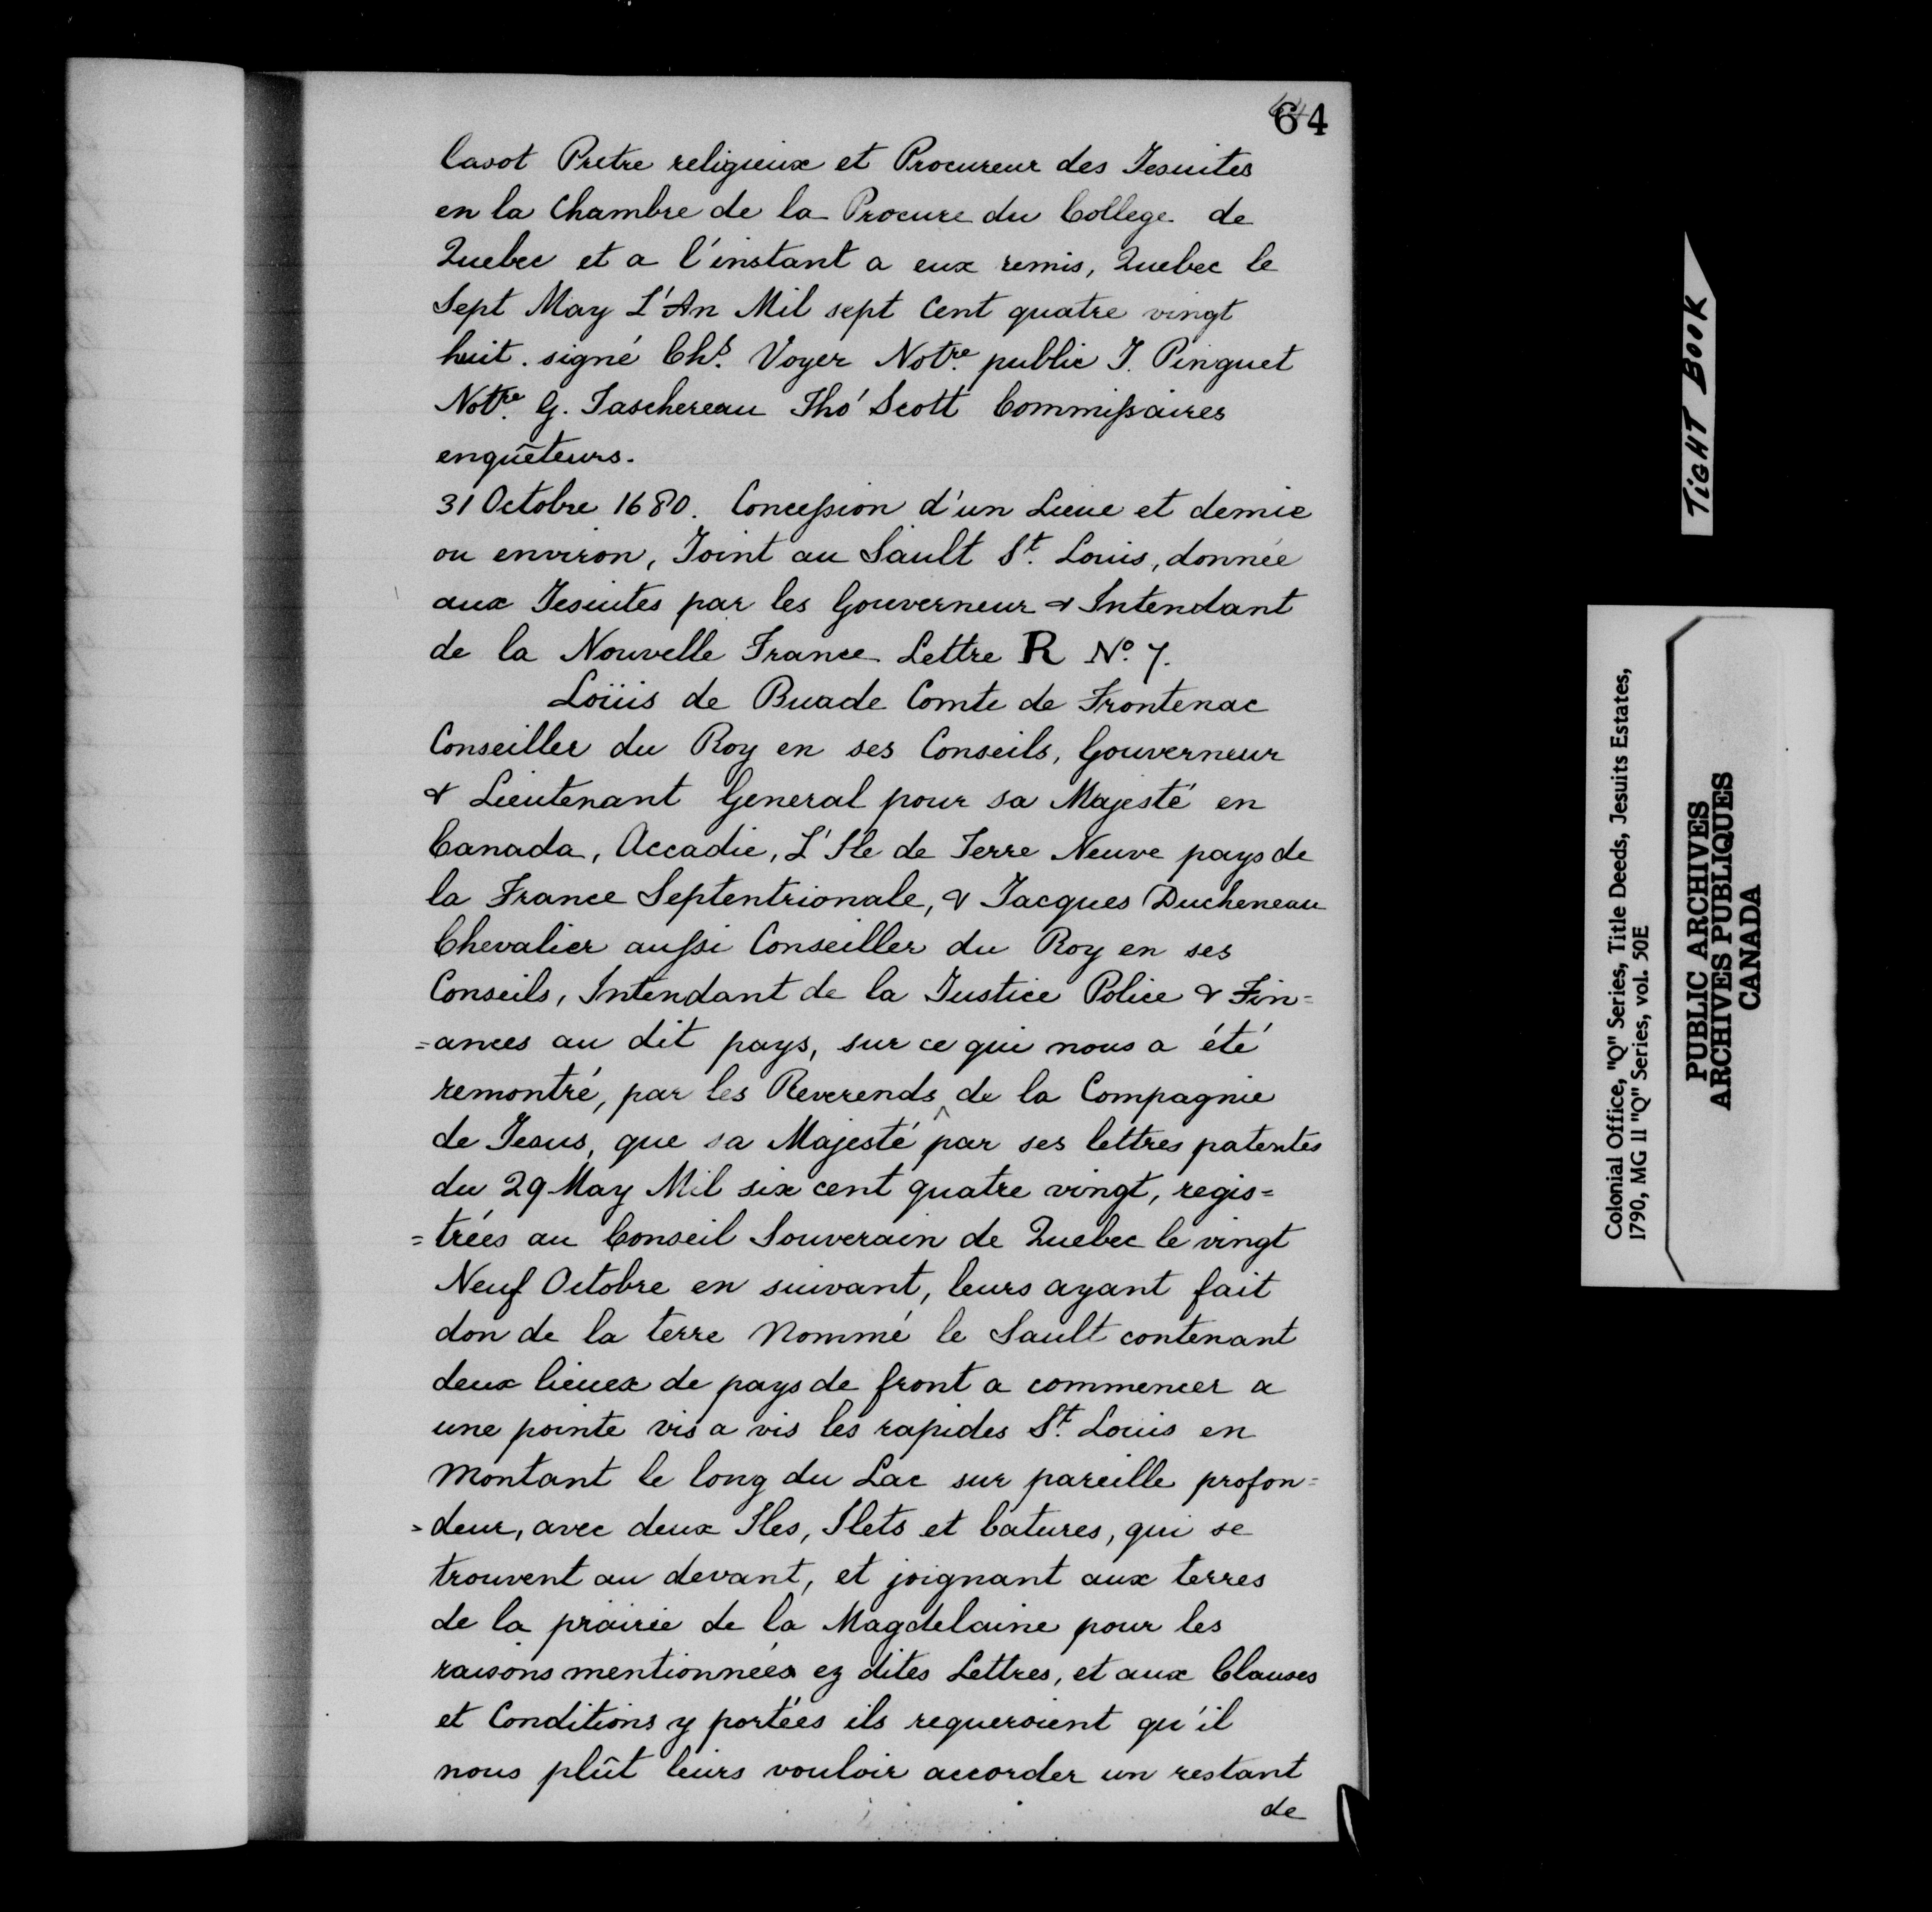 64
Casot Pretre religieux et Procureur des Jesuites
en la Chambre de la Procure du College de
Quebec et a l'instant a eux remis, Quebec le
Sept May L'An Mil sept Cent quatre vingt
huit. signé Chs. Voyer Notre. public J. Pinguet
Notre. G. Taschereau Tho' Scott Commissaires
enquêteurs.
31 Octobre 1680. Concession d'un Lieue et demie
ou environ, Joint au Sault St. Louis, donnée
aux Jesuites par les Gouverneur & Intendant
de la Nouvelle France Lettre R No. 7.
Loüis de Buade Comte de Frontenac
Conseiller du Roy en ses Conseils, Gouverneur
& Lieutenant General pour sa Majesté en
Canada, Accadie, L'Ile de Terre Neuve pays de
la France Septentrionale, & Jacques Ducheneau
Chevalier aussi Conseiller du Roy en ses
Conseils, Intendant de la Justice Police & Fin=
=ances au dit pays, sur ce qui nous a été
remontré, par les Reverends ^ de la Compagnie
de Jesus, que sa Majesté par ses lettres patentes
du 29 May Mil six cent quatre vingt, regis=
=trées au Conseil Souverain de Quebec le vingt
Neuf Octobre en suivant, leurs ayant fait
don de la terre Nommé le Sault contenant
deux lieues de pays de front a commencer a
une pointe vis a vis les rapides St. Louis en
Montant le long du Lac sur pareille profon=
=deur, avec deux Iles, Ilets et batures, qui se
trouvent au devant, et joignant aux terres
de la prairie de la Magdelaine pour les
raisons mentionnées ez dites Lettres, et aux Clauses
et Conditions y portées ils requeroient qu'il
nous plût leurs vouloir accorder un restant
de
TIGHT BOOK
Colonial Office, "Q" Series, Title Deeds, Jesuits Estates,
1790, MG 11 "Q" Series, vol. 50E
PUBLIC ARCHIVES
ARCHIVES PUBLIQUES
CANADA